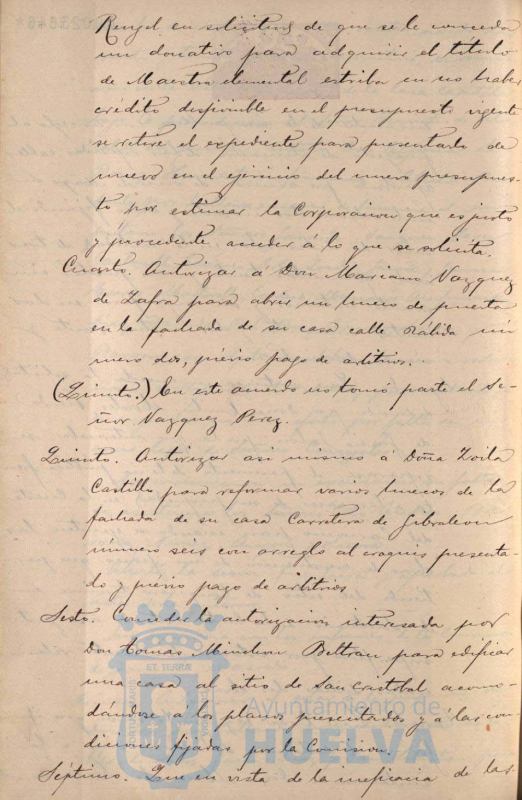 Rengel en solicitud de que se le conceda
un donativo para adquirir el título
de Maestra elemental estriba en no haber
crédito disponible en el presupuesto vigente
se retire el expediente para presentarlo de
nuevo en el ejercicio del nuevo presupues-
to por estimar la Corporacion que es justo
y procedente acceder á lo que se solicita.
Cuarto. Autorizar á Don Mariano Vazquez
de Zafra para abrir un hueco de puerta
en la fachada de su casa calle Rábida nú
mero dos, prévio pago de arbitrios.
(Quinto.) En este acuerdo no tomó parte el Se-
ñor Vazquez Perez.
Quinto. Autorizar asi mismo á Doña Zoila
Castillo para reformar varios huecos de la
fachada de su casa Carretera de Gibraleon
número seis con arreglo al croquis presenta-
do y prévio pago de arbitrios
Sesto. Conceder la autorizacion interesada por
Don Tomas Minchon Beltran para edificar
una casa al sitio de San Cristobal acomo-
dándose á los planos presentados y á las con
diciones fijadas por la Comision.
Septimo. Que en vista de la ineficacia de las
ET TERRÆ
Ayuntamiento de
HUELVA